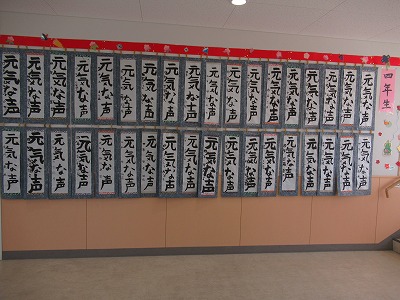 四年生
元気な声
元気な声
元気な声
元気な声
元気な声
元気な声
元気な声
元気な声
元気な声
元気な声
元気な声
元気な声
元気な声
元気な声
元気な声
元気な声
元気な声
元気な声
元気な声
元気な声
元気な声
元気な声
元気な声
元気な声
元気な声
元気な声
元気な声
元気な声
元気な声
元気な声
元気な声
元気な声
元気な声
元気な声
元気な声
元気な声